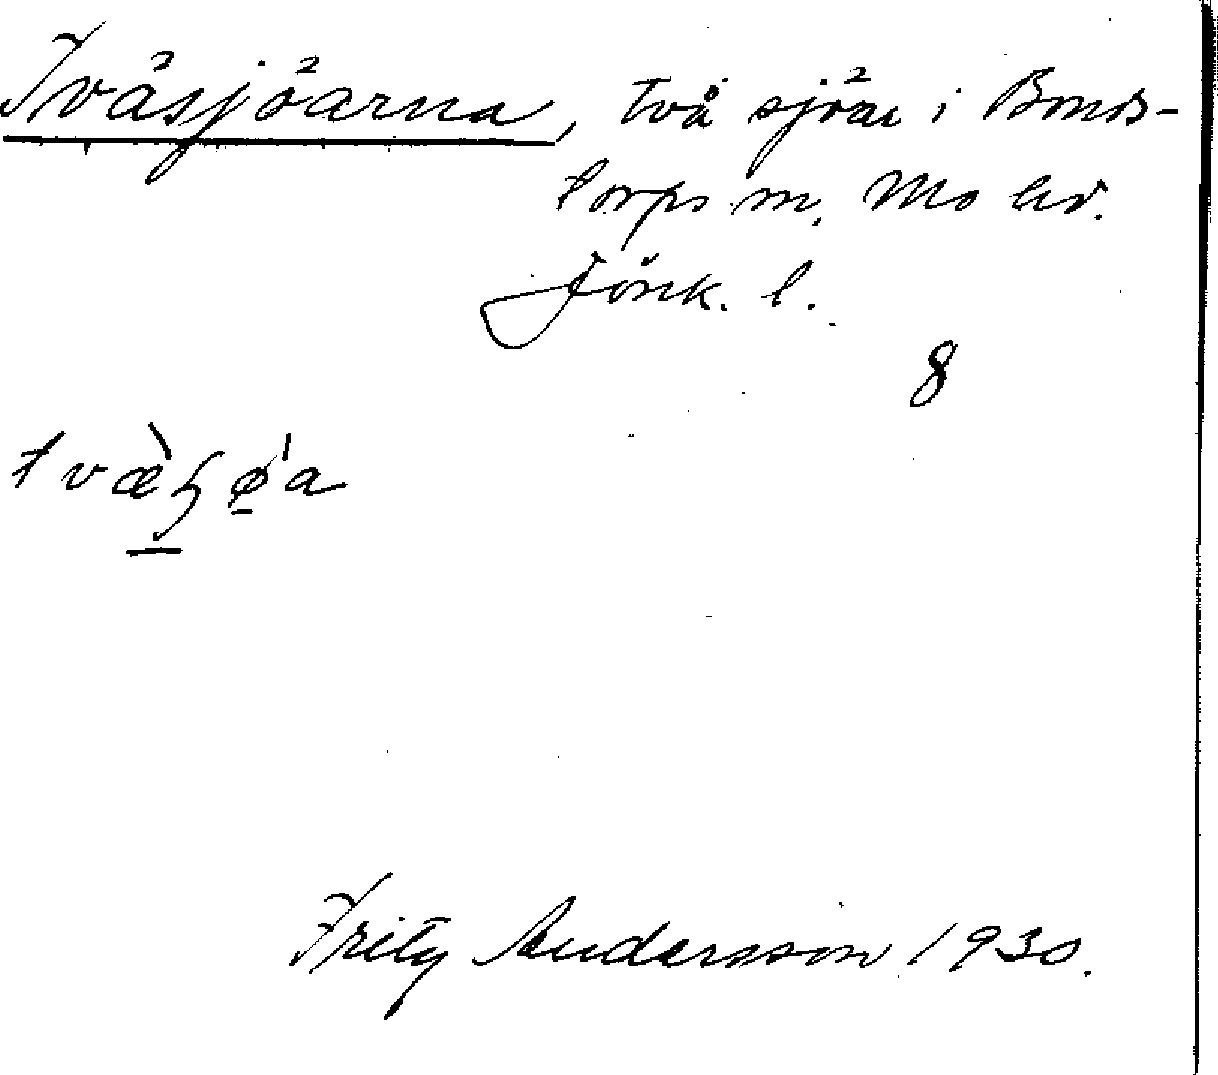 Tväsjöarna, två sjöar i Bonds-
torps sn. Mo hd.
Jönk. l.
8
Fritz Andersson 1930.